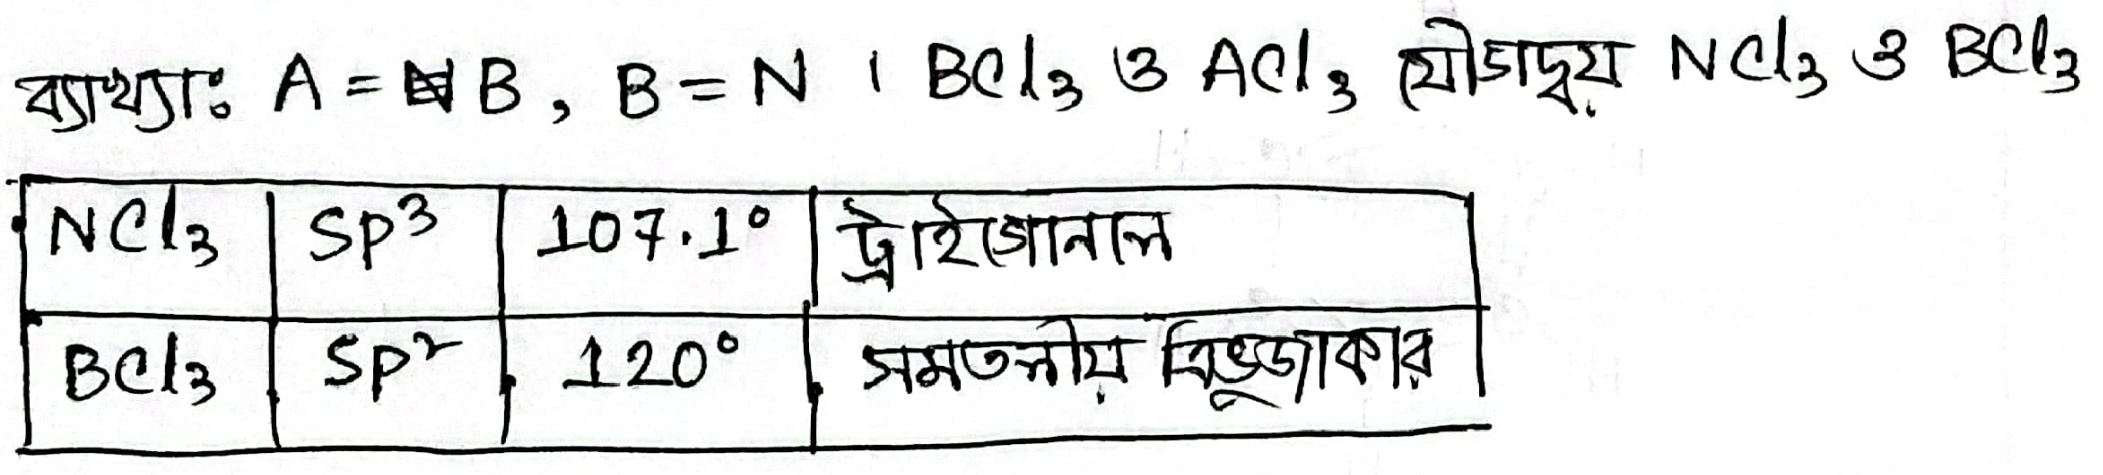 ব্যাখ্যাঃ A = B, B = N । BCl₃ ও ACl₃ যৌগদ্বয় NCl₃ ও BCl₃
NCl₃ SP³ 107.1° ট্রাইগোনাল
BCl₃ SP² 120° সমতলীয় ত্রিভূজাকার